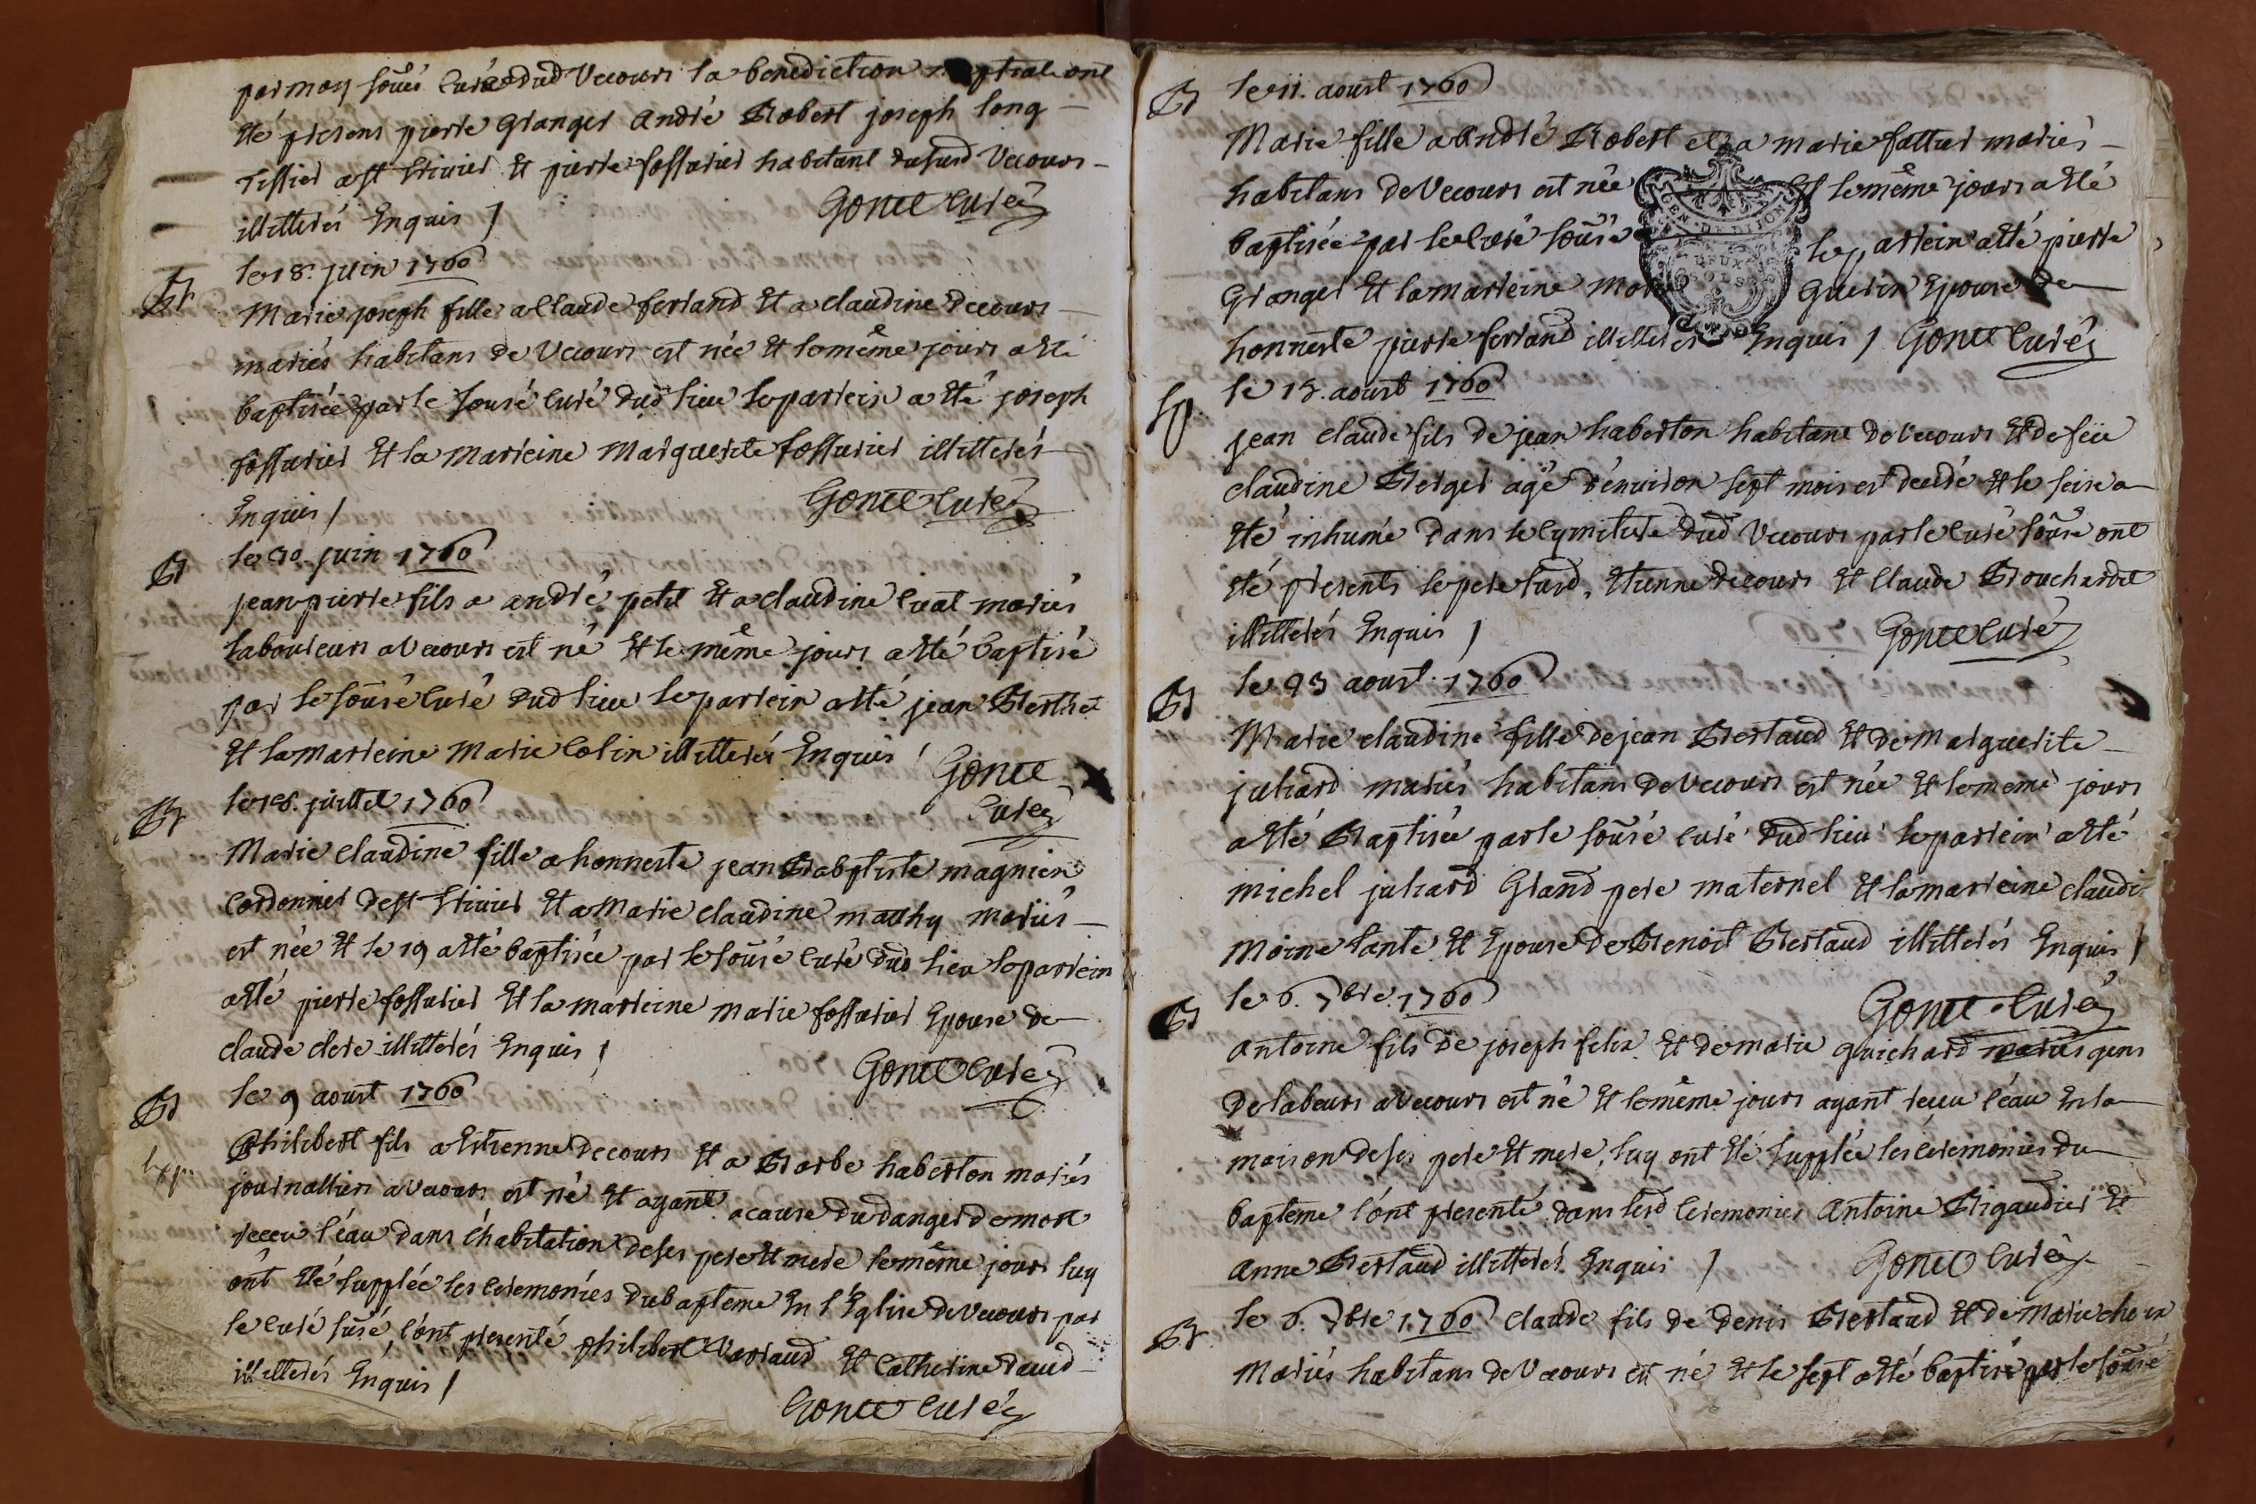 par moy soûsé curé dud Vecours la benediction ont
été presens pierre Granger André Robert joseph long
Tissier a st trivier Et pierre fossurier habitant dusurd Vecours
illitterés Enquis /
Gonce Curé
Br
le 18. juin 1760
Marie joseph fille a Claude ferland Et a claudine decours
mariés habitans de Vecours est née Et le même jours a été
baptisée par le sousé curé dud lieu le parrein a été joseph
fossurier Et la marreine Marguerite fossurier illitterés
Enquis /
Gonce Curé
B
le 30. juin 1760
jean pierre fils a andré petit Et a claudine Curat mariés
laboureurs a Vecours est né Et le même jours a été baptisé
par le soûsé curé dud lieu le parrein a été jean Berthet
Et la marreine Marie Colin illitterés Enquis /
Gonce
Curé
Br
le 18. juillet 1760
Marie claudine fille a honneste jean Babptiste magnien
Cordonnier de st trivier Et a Marie claudine mathy mariés
est née Et le 19 a été baptisée par le soûsé curé dud lieu le parrein
a été pierre fossurier Et la marreine marie fossurier Epouse de
claude clere illitterés Enquis /
Gonce Curé
B
le 9 aoust 1760
Philibert fils a Etienne decours Et a Barbe haberton mariés
journalliers a Vecours est né Et ayant a cause du danger de mort
receu l'éau dans l'habitation de ses pere Et mere le même jours luy
ont été supplée les ceremonies du bapteme En l'Eglise de Vecours par
le curé susé, l'ont presenté philibert Verraud Et Catherine
illitterés Enquis /
Gonce Curé
B
le 11. aoust 1760
Marie fille a André Robert et a marie fattier mariés
habitans de Vecours est née Et le même jours a été
GEN DE DIJON
baptisée par le Curé soûsé le parrein a été pierre
DEUX
SOLS
Granger Et la marreine Guerin Epouse de
honneste pierre ferland illitterés Enquis / Gonce Curé
Sp.
le 15. aoust 1760
jean claude fils de jean haberton habitant de Vecours Et de feüe
claudine Berger agé d'environ sept mois est decedé Et le seize a
été inhumé dans le cymitiere dud Vecours par le curé soûsé ont
été presents le pere surd, Etienne decours Et Claude Brouchardet
illitterés Enquis /
Gonce Curé
B
le 23 aoust 1760
Marie claudine fille de jean Bertaud Et de Marguerite
juliard mariés habitans de Vecours est née Et le meme jours
a été Baptisée par le soûsé curé dud lieu le parrein a été
michel juliard Grand pere maternel Et la marreine claudi
moine tante Et Epouse de Benoit Bertaud illitterés Enquis /
Gonce Curé
B
le 6. 7bre. 1760
Antoine fils de joseph felix Et de marie guichard mariés gens
de labeurs a Vecours est né Et le même jours ayant receu l'éau En la
maison de ses pere Et mere, luy ont été supplée les ceremonies du
bapteme l'ont presenté dans lesd Ceremonies Antoine Rigaudier Et
Anne Bertaud illitterés Enquis /
Gonce Curé
Br
le 6. 7bre 1760 Claude fils de denis Bertaud Et de Marie
Mariés habitans de Vecours est né Et le sept a été baptisé par le soûsé